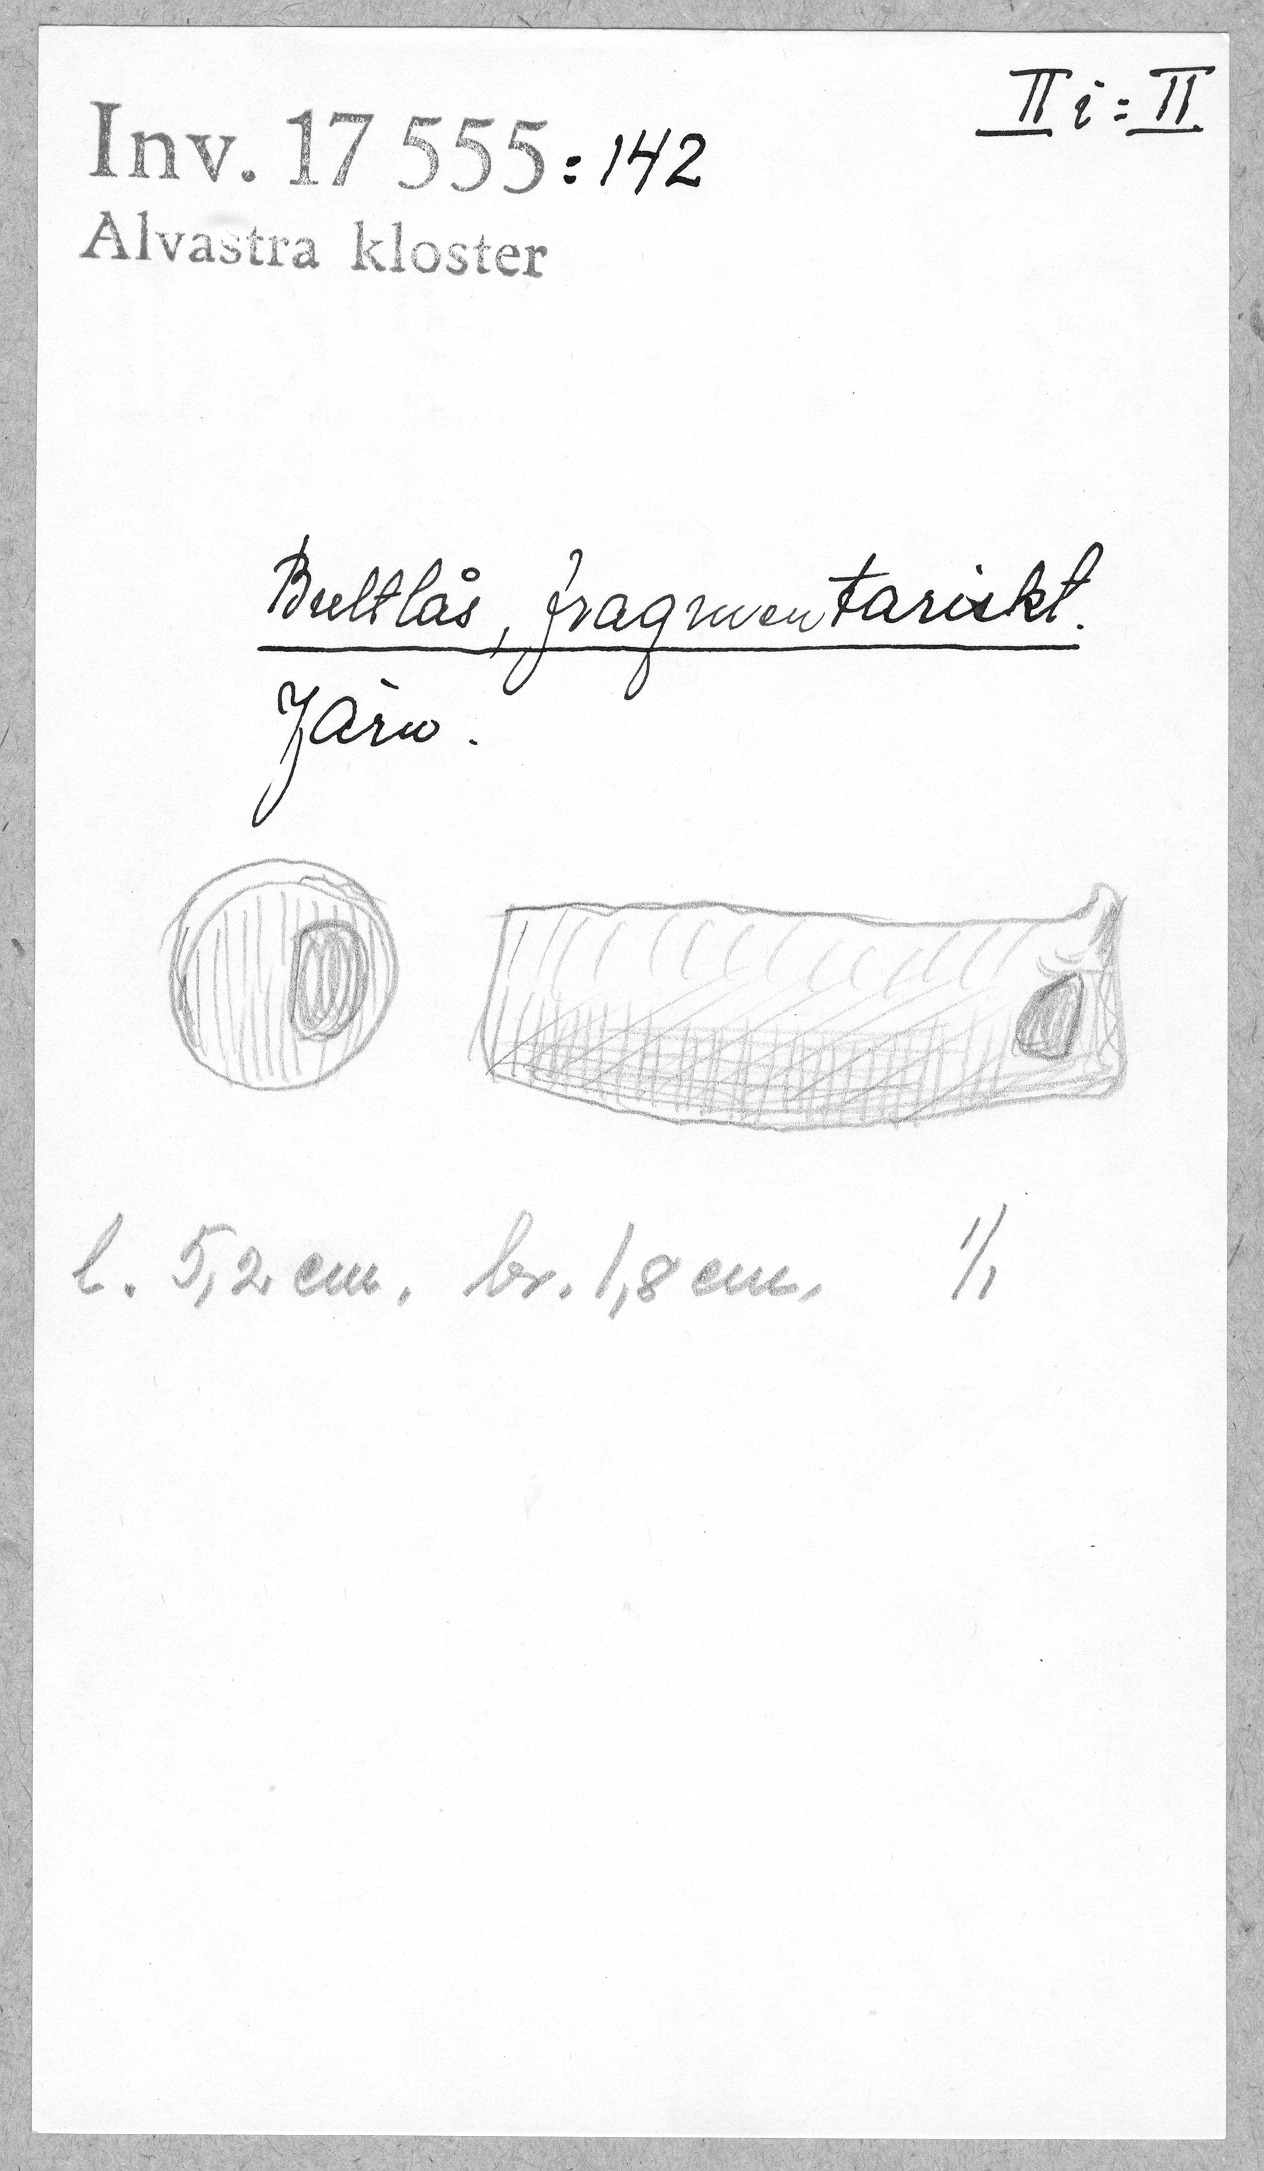 II i:II
Inv. 17 555:142
Alvastra kloster
Bultlås, fragmentariskt.
Järn.
l. 5,2 cm. br. 1,8 cm. 1/1